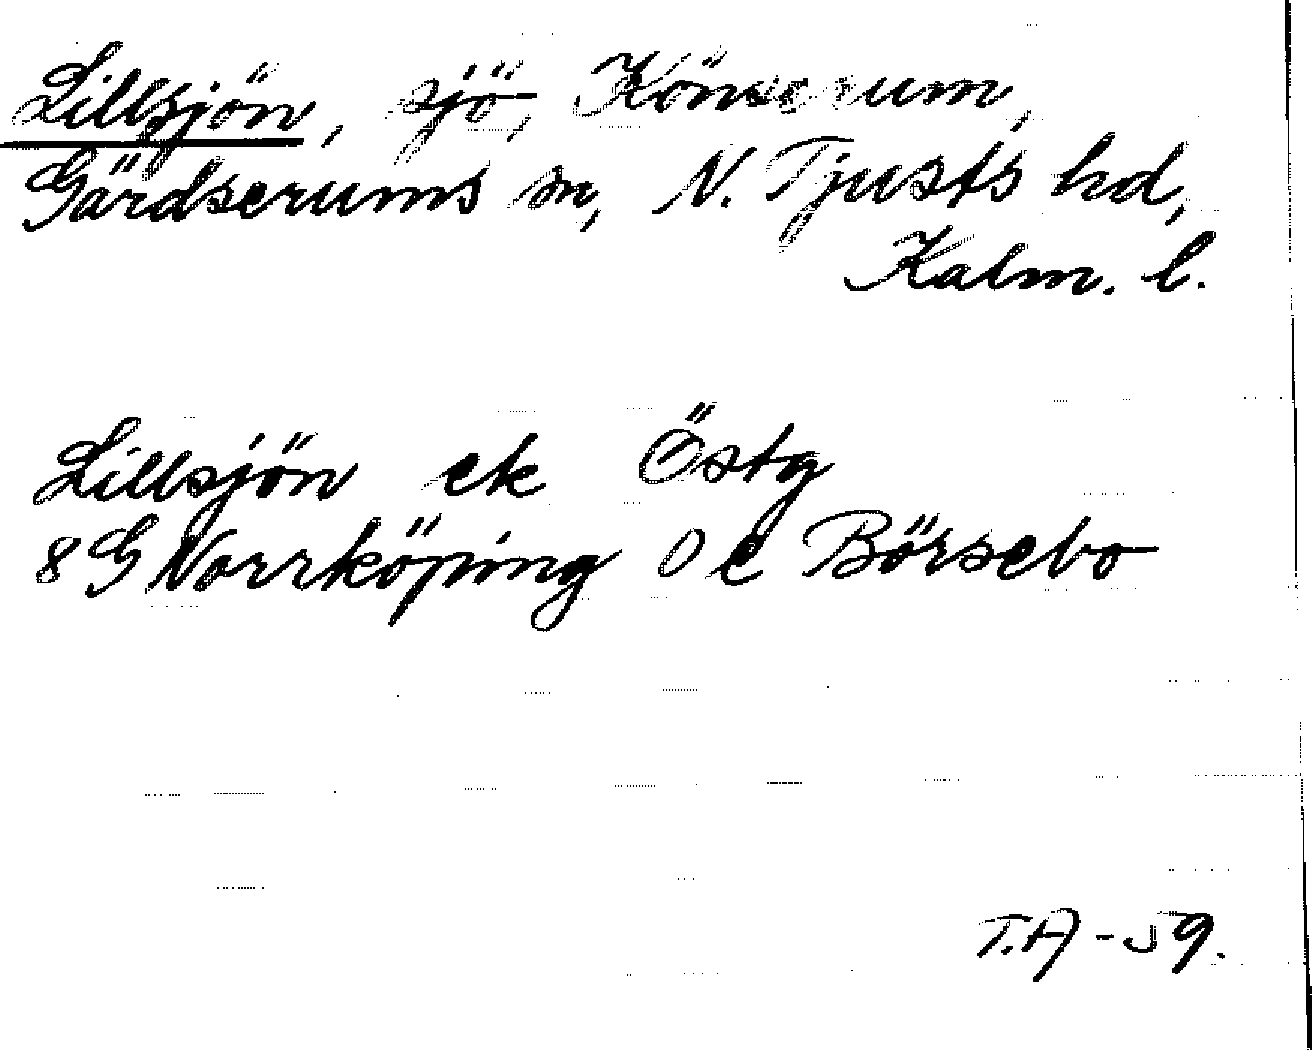 Lillsjön, sjö, Könserum,
Gärdserums sn, N. Tjusts hd,
Kalm. l.
Lillsjön ek Östg
8G Norrköping 0e Börsebo
T.A - 59.